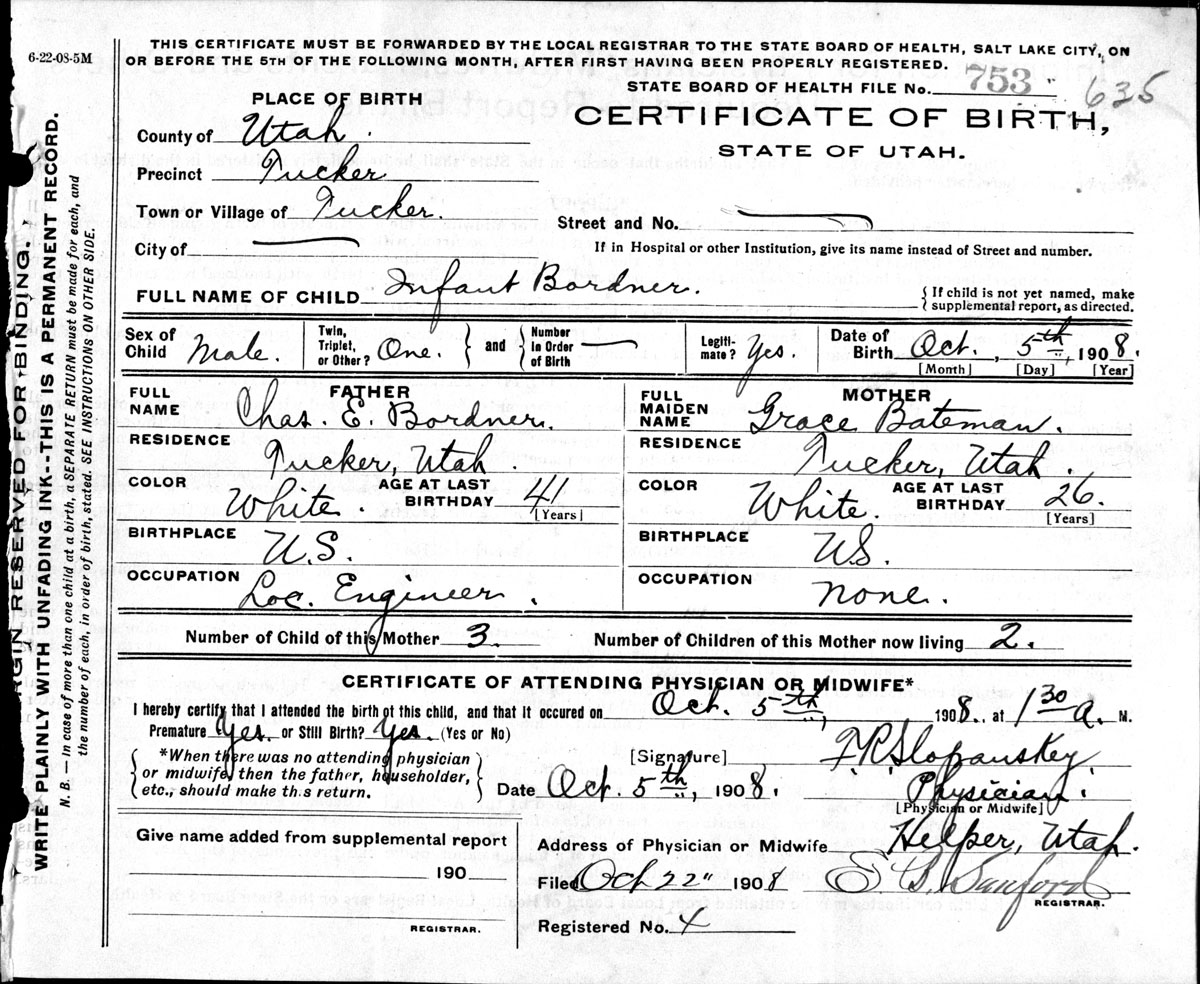 6-22-08-5M
THIS CERTIFICATE MUST BE FORWARDED BY THE LOCAL REGISTRAR TO THE STATE BOARD OF HEALTH, SALT LAKE CITY, ON
OR BEFORE THE 5TH OF THE FOLLOWING MONTH, AFTER FIRST HAVING BEEN PROPERLY REGISTERED.
STATE BOARD OF HEALTH FILE No. 753 635
PLACE OF BIRTH
CERTIFICATE OF BIRTH,
STATE OF UTAH.
County of Utah.
Precinct Tucker
Town or Village of Tucker. Street and No.
City of If in Hospital or other Institution, give its name instead of Street and number.
FULL NAME OF CHILD Infant Bordner. { If child is not yet named, make
supplemental report, as directed.
Sex of Child Male. Twin, Triplet, or Other? One. } and { Number in Order of Birth — Legiti-mate? Yes. Date of Birth Oct., 5th, 1908.
[Month] [Day] [Year]
FATHER MOTHER
FULL NAME Chas. E. Bordner. FULL MAIDEN NAME Grace Bateman.
RESIDENCE Tucker, Utah. RESIDENCE Tucker, Utah.
COLOR White. AGE AT LAST BIRTHDAY 41 [Years] COLOR White. AGE AT LAST BIRTHDAY 26. [Years]
BIRTHPLACE U.S. BIRTHPLACE U.S.
OCCUPATION Loc. Engineer. OCCUPATION None.
Number of Child of this Mother 3 Number of Children of this Mother now living 2.
CERTIFICATE OF ATTENDING PHYSICIAN OR MIDWIFE*
I hereby certify that I attended the birth of this child, and that it occured on Oct. 5th, 1908., at 1 30 a. M.
Premature Yes. or Still Birth? Yes. (Yes or No)
{ *When there was no attending physician
or midwife, then the father, householder,
etc., should make th.s return. }
[Signature] F.R. Slopanskey.
Date Oct. 5th, 1908. Physician.
[Physician or Midwife]
Address of Physician or Midwife Helper, Utah.
Filed Oct 22" 1908 E B. Sanford
REGISTRAR.
Registered No. 4
Give name added from supplemental report
190
REGISTRAR.
MARGIN RESERVED FOR BINDING.
WRITE PLAINLY WITH UNFADING INK--THIS IS A PERMANENT RECORD.
N. B. — In case of more than one child at a birth, a SEPARATE RETURN must be made for each, and
the number of each, in order of birth, stated. SEE INSTRUCTIONS ON OTHER SIDE.